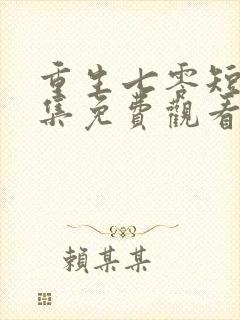 重生七零短
集免費觀看
賴某某